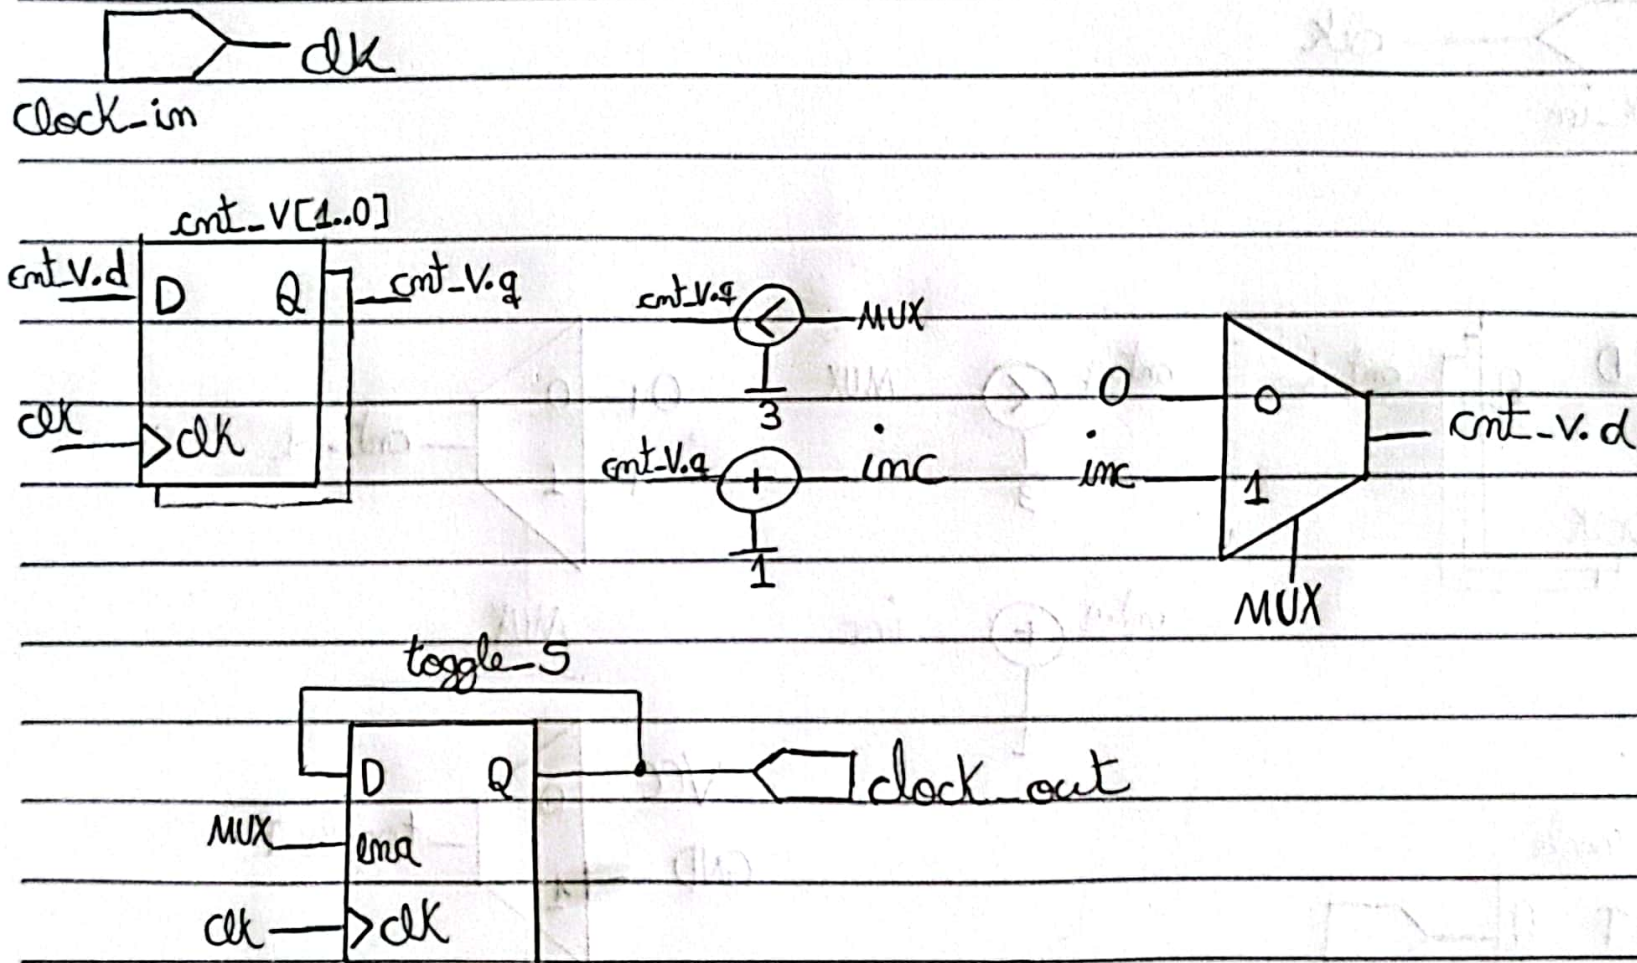 clk
Clock_in
cnt_V[1..0]
cnt_V.d
D
Q
cnt_V.q
clk
clk
cnt_V.q
<
MUX
3
cnt_V.q
+
inc
1
0
0
inc
1
cnt_V.d
MUX
toggle_S
D
Q
clock_out
MUX
ena
clk
clk